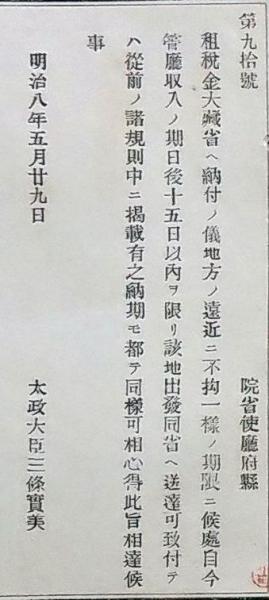 第九拾號
院省使廳府縣
租税金大藏省ヘ納付ノ儀地方ノ遠近ニ不拘一樣ノ期限ニ候處自今
管廳收入ノ期日後十五日以內ヲ限リ該地出發同省ヘ送達可致付テ
ハ從前ノ諸規則中ニ揭載有之納期モ都テ同樣可相心得此旨相達候
事
明治八年五月廿九日
太政大臣三條實美